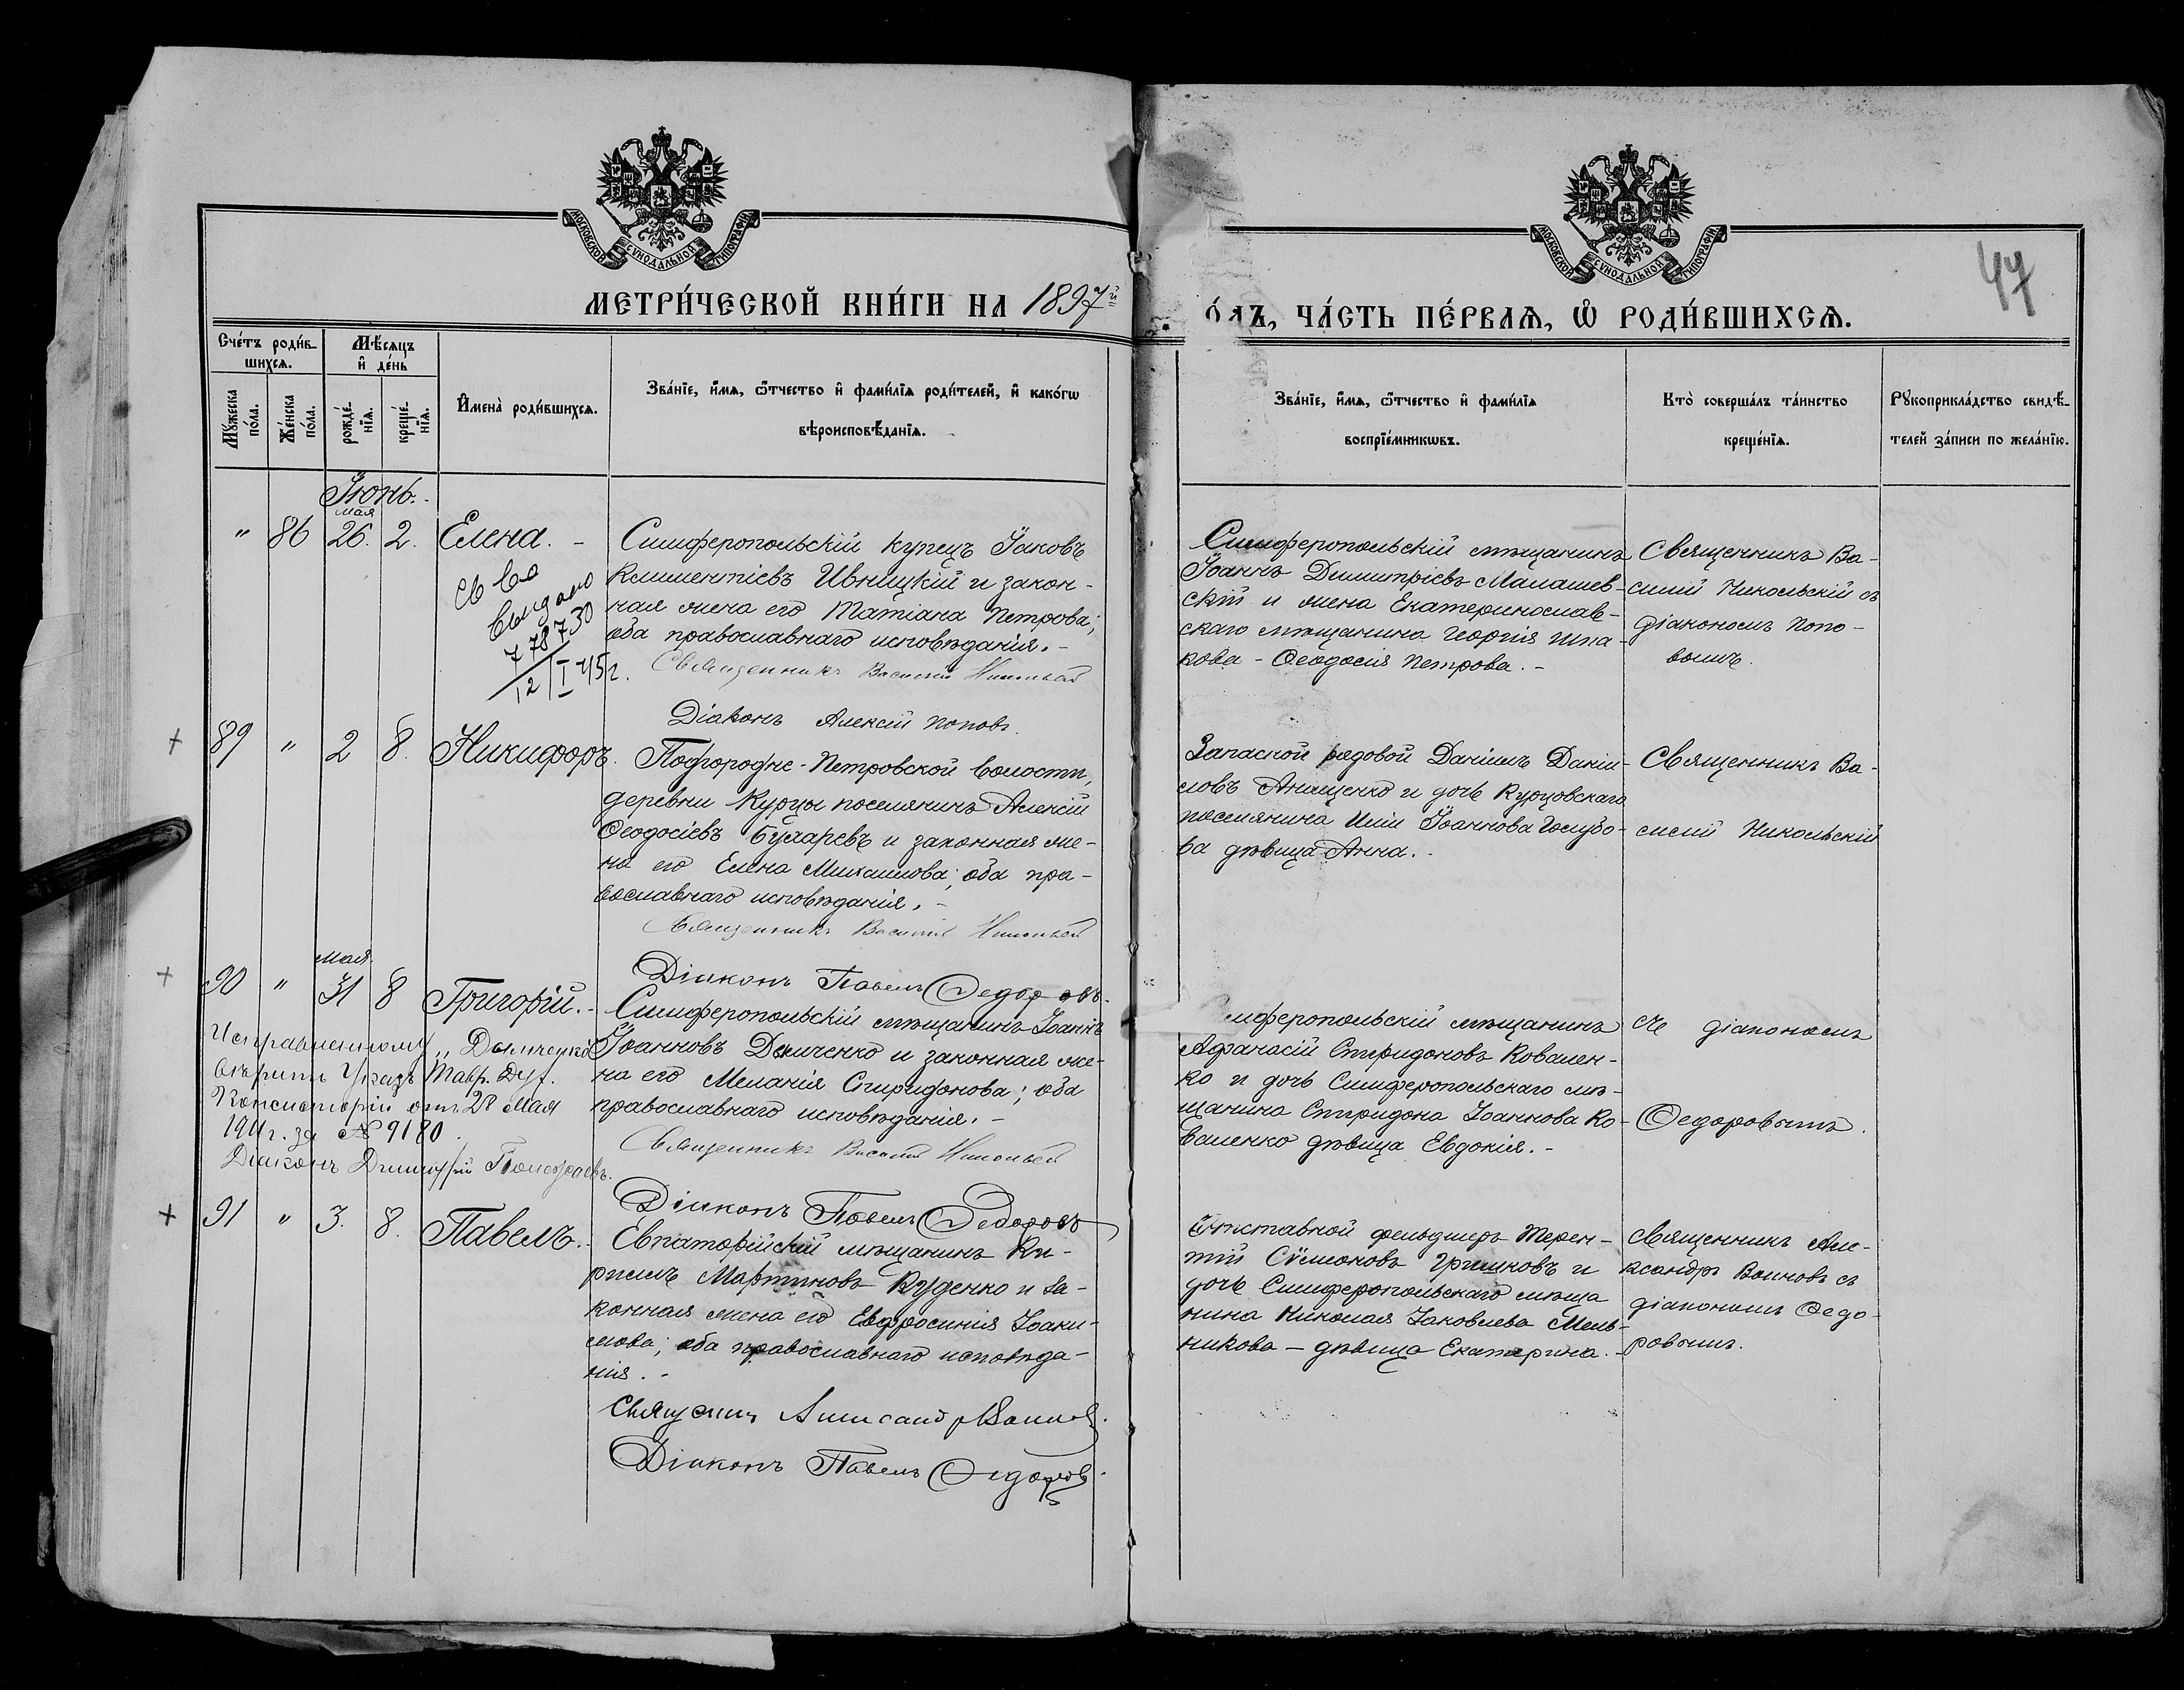 МОСКОВСКОЙ СУНОДАЛЬНОЙ ТИПОГРАФІИ
МОСКОВСКОЙ СУНОДАЛЬНОЙ ТИПОГРАФІИ
47
МЕТРИ́ЧЕСКОЙ КНИ́ГИ НА 1897й
о́дъ, ЧА́СТЬ ПЕ́РВАѦ, Ѡ҆ РОДИ́ВШИХСѦ.
Сче́тъ роди́в-
шихсѧ.
Мѣ́сѧцъ
и҆ де́нь
Мꙋ́жеска
по́ла.
Же́нска
по́ла.
рожде́-
нїѧ.
креще́-
нїѧ.
И҆мена̀ роди́вшихсѧ.
Зва́нїе, и҆́мѧ, ѻ҆́тчество и҆ фами́лїѧ роди́телей, и҆ како́гѡ
вѣроисповѣ́данїѧ.
Зва́нїе, и҆́мѧ, ѻ҆́тчество и҆ фами́лїѧ
воспрїе́мникѡвъ.
Кто̀ соверша́лъ та́инство
креще́нїѧ.
Рꙋкоприкла́дство свидѣ́-
телей за́писи по жела́нїю.
Іюнь.
мая
" 86 26. 2. Елена. -
Св во
выдано
778730
12/I 45 г.
Симферопольскій купецъ Іаковъ
Климентіевъ Ивницкій и закон-
ная жена его Татіана Петрова;
оба православнаго исповѣданія. -
Священникъ Василій Никольскій
Діаконъ Алексій Поповъ.
Симферопольскій мѣщанинъ
Іоаннъ Димитріевъ Малашев-
скій и жена Екатеринослав-
скаго мѣщанина Георгія Шпа-
кова - Ѳеодосія Петрова. -
Священникъ Ва-
силій Никольскій съ
діакономъ Попо-
вымъ.
+ 89 " 2 8. Никифоръ.
Подгородне-Петровской волости,
деревни Курцы поселянинъ Алексій
Ѳеодосіевъ Бухаревъ и законная же-
на его Елена Михаилова; оба пра-
вославнаго исповѣданія. -
Священникъ Василій Никольскій
Діаконъ Павелъ Ѳедоровъ.
Запасной рядовой Даніилъ Даніи-
ловъ Анищенко и дочь Курцовскаго
поселянина Иліи Іоаннова Голубо-
ва дѣвица Анна. -
Священникъ Ва-
силій Никольскій
+ 90 " мая 31 8 Григорій. -
Исправленному "Дямченко"
вѣрить Указъ Тавр. Дух.
Консисторіи отъ 28 Мая
1911 г. за № 9180.
Діаконъ Димитрій
Симферопольскій мѣщанинъ Іоаннъ
Іоанновъ Демченко и законная же-
на его Меланія Спиридонова; оба
православнаго исповѣданія. -
Священникъ Василій Никольскій
Діаконъ Павелъ Ѳедоровъ
мферопольскій мѣщанинъ
Аѳанасій Спиридоновъ Ковален-
ко и дочь Симферопольскаго мѣ-
щанина Спиридона Іоаннова Ко-
валенко дѣвица Евдокія. -
діакономъ
Ѳедоровымъ.
+ 91 " 3. 8. Павелъ. -
Евпаторійскій мѣщанинъ Ки-
риллъ Мартиновъ Руденко и за-
конная жена его Евфросинія Іоаки-
мова; оба православнаго исповѣда-
нія. -
Священникъ Александръ Воиновъ.
Діаконъ Павелъ Ѳедоровъ.
фельдшеръ Терен-
тій Сѵмеоновъ Гришковъ и
дочь Симферопольскаго мѣща
нина Николая Іаковлева Мель-
никова - дѣвица Екатерина. -
Священникъ Але-
ксандръ Воиновъ съ
діакономъ Ѳедо-
ровымъ.